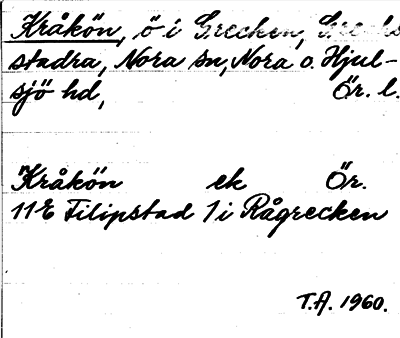 Kråkön, ö i Grecken, Grecks
stadra, Nora sn, Nora o. Hjul-
sjö hd, Ör. l.
Kråkön ek Ör.
11E Filipstad 1 i Rågrecken
T.A. 1960.